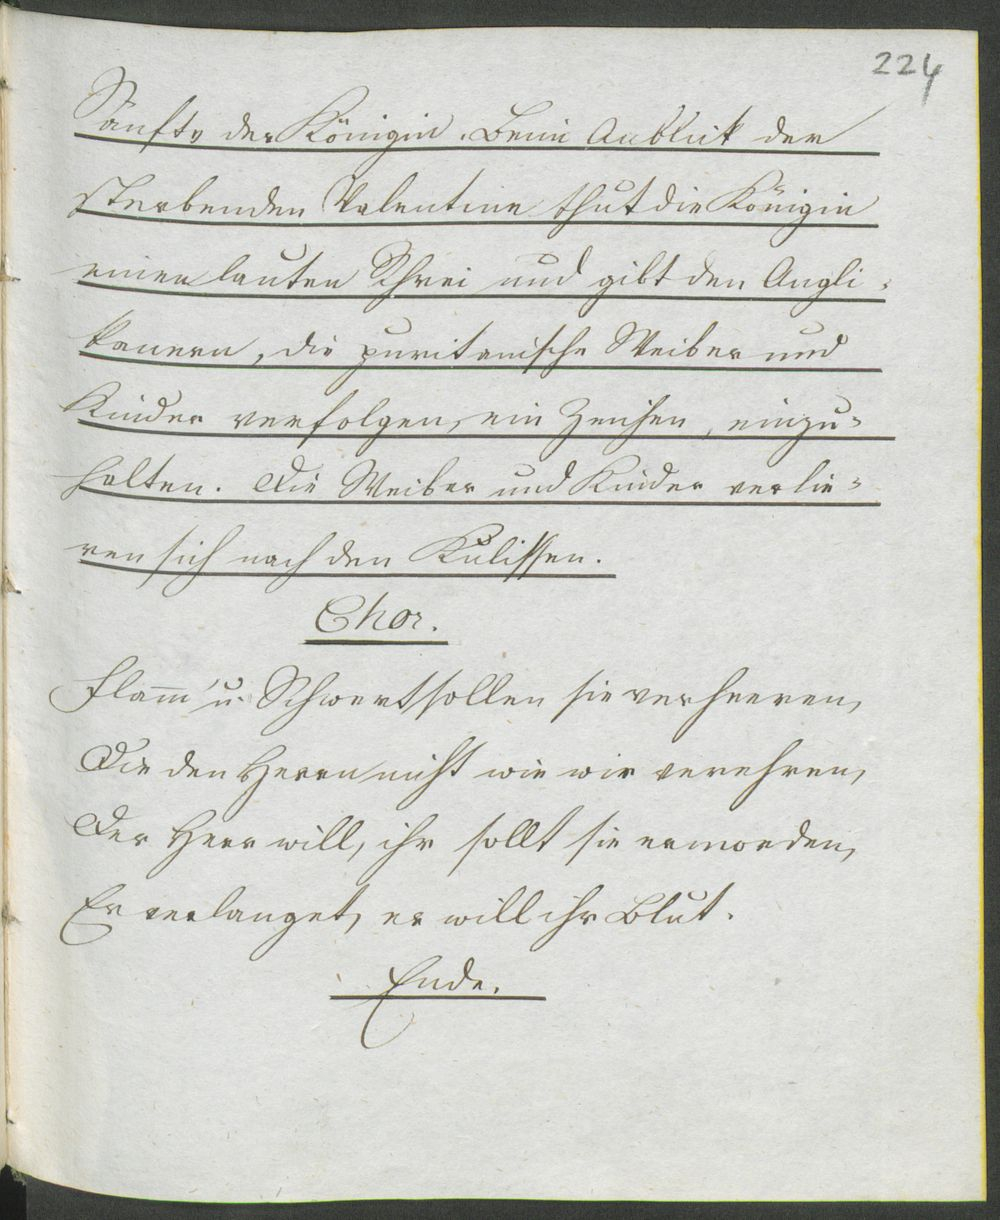 224
Sänfte der Königin. Beim Anblick der
sterbenden Valentine thut die Königin
einen lauten Schrei und gibt den Angli-
kanern, die puritanische Weiber und
Kinder verfolgen, ein Zeichen, einzu-
halten. Die Weiber und Kinder verlie-
ren sich nach den Kulissen.
Chor.
Flamm' u. Schwert sollen sie verheeren,
Die den Herrn nicht wie wir verehren,
Der Herr will, ihr sollt sie ermorden,
Er verlanget, er will ihr Blut.
Ende.